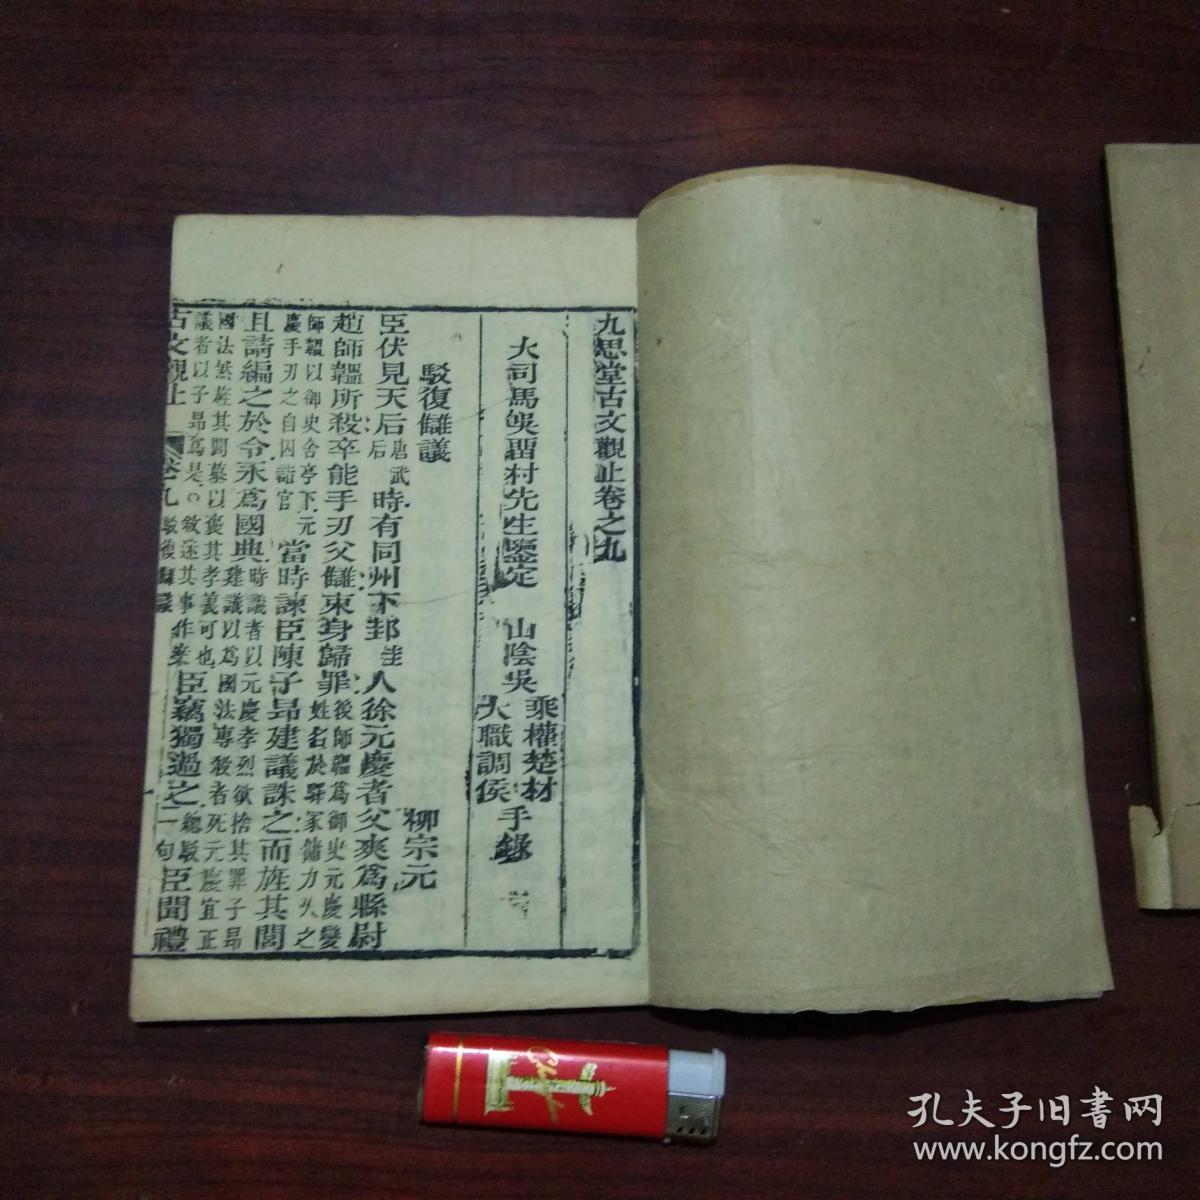 九思堂古文觀止卷之九
大司馬吳畱村先生鑒定　山陰吳
乘權楚材
大職調侯
手錄
駁復讎議
柳宗元
臣伏見天后
唐武
后
時有同州下邽
圭
人徐元慶者父爽爲縣尉
趙師韞所殺卒能手刃父讎束身歸罪
後師韞爲御史元慶變
姓名於驛家傭力久之
師韞以御史舍亭下元
慶手刃之自囚詣官
當時諫臣陳子昂建議誅之而旌其閭
且請編之於令永爲國典
時議者以元慶孝烈欲捨其罪子昂
建議以爲國法專殺者死元慶宜正
國法然旌其閭墓以褒其孝義可也
議者以子昂爲是○敘述其事作案
臣竊獨過之
總駁
一句
臣聞禮
古文觀止
卷九
駁復讎議
孔夫子旧書网
www.kongfz.com